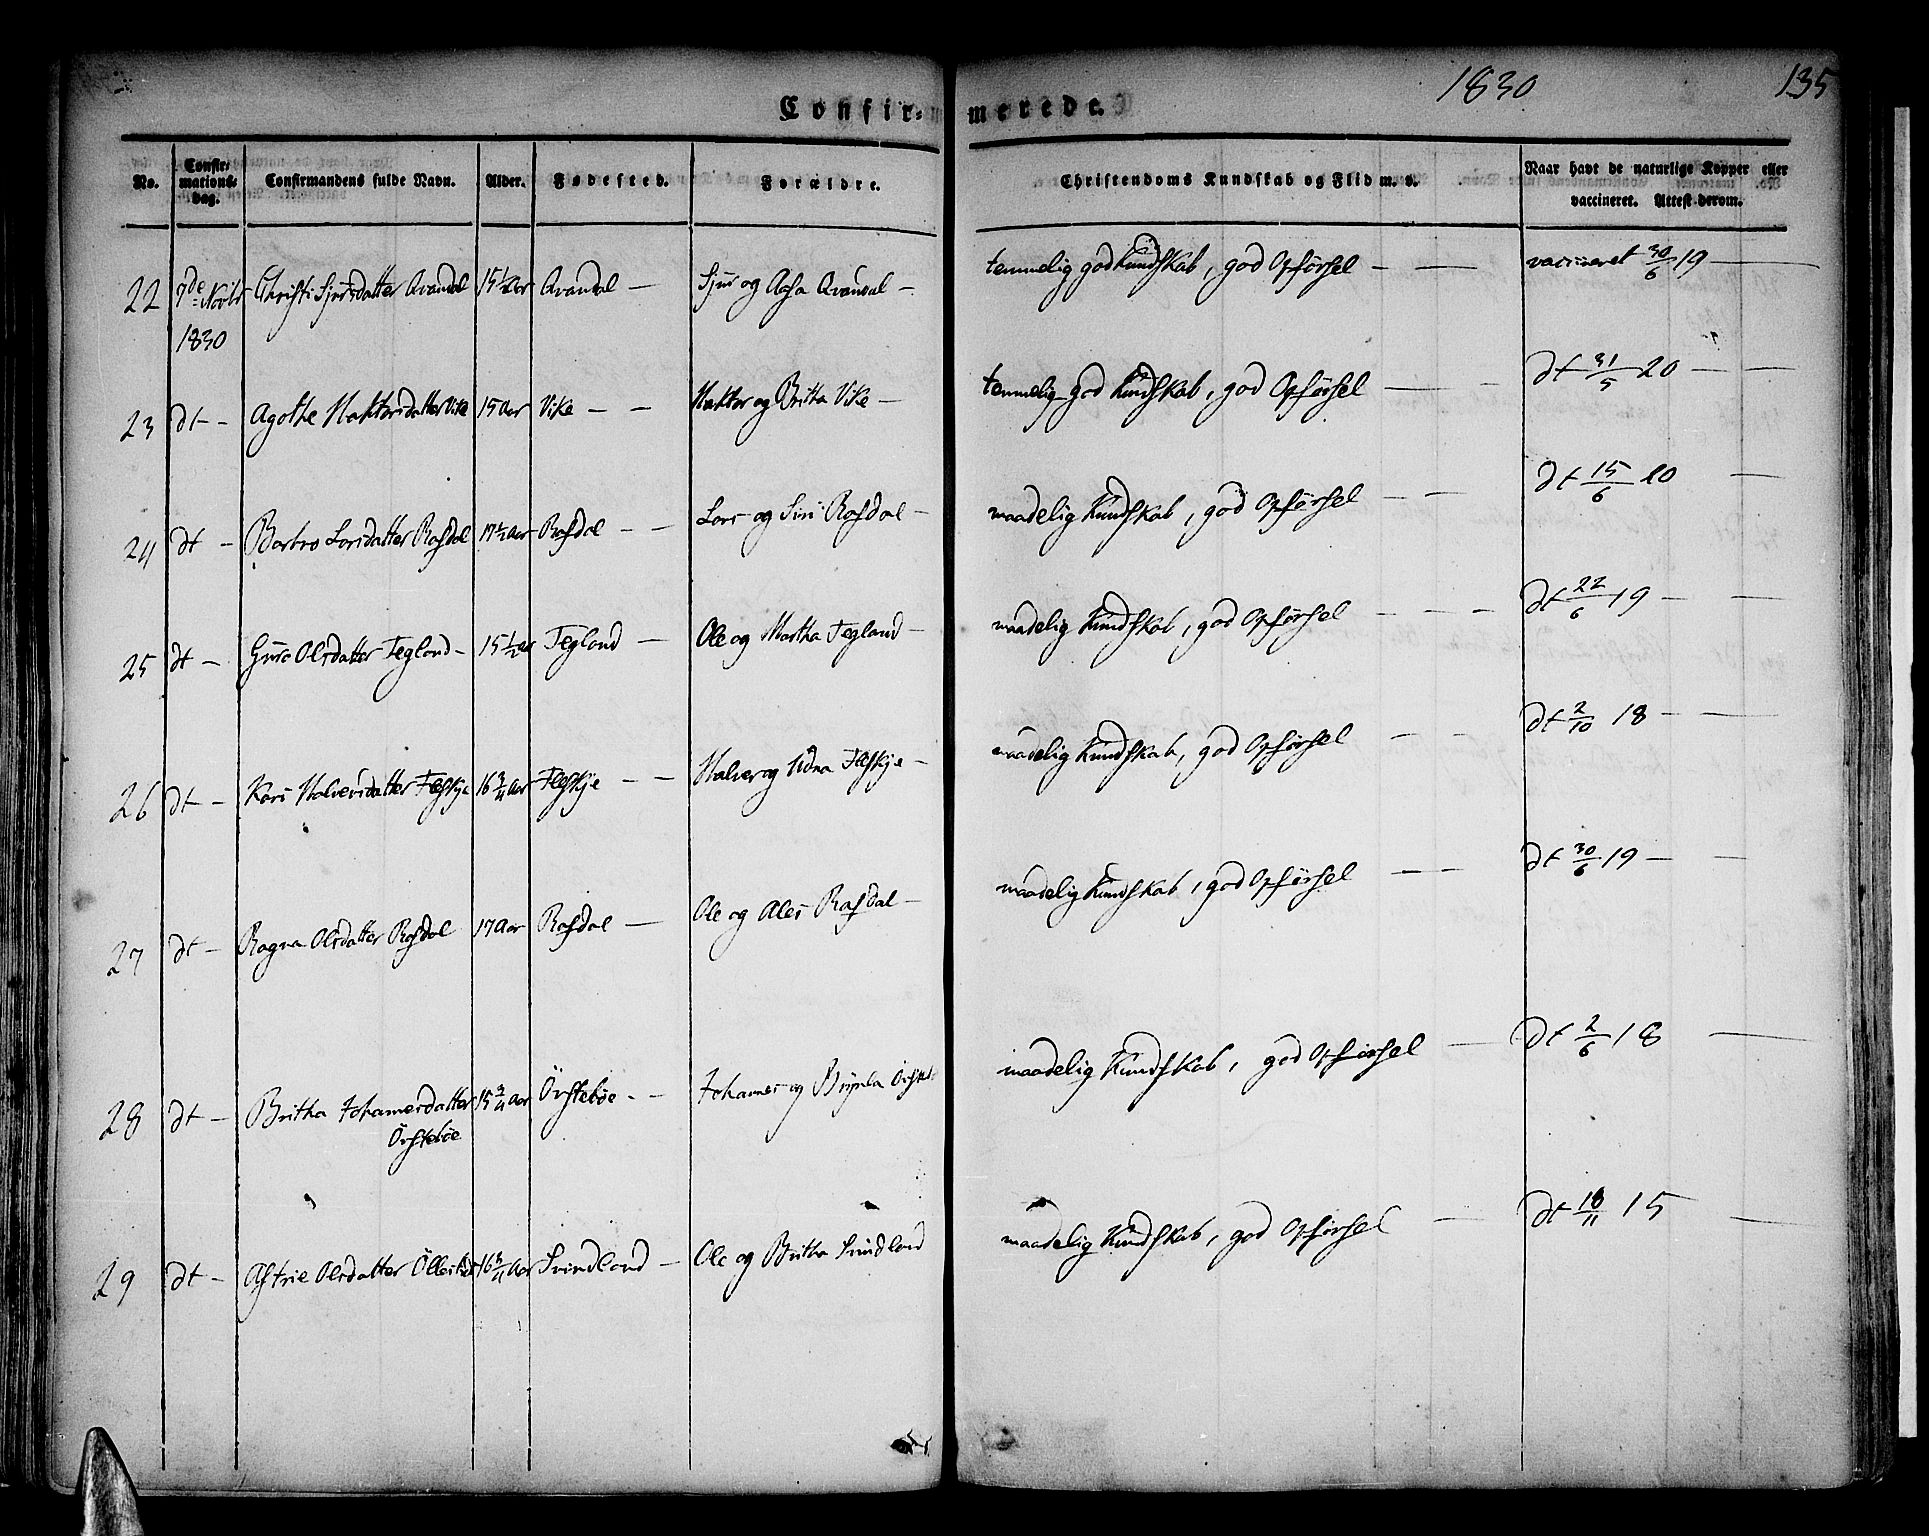 1830
135
Confir= merede.
No. Confir= mations= dag. Confirmandens fulde Navn. Alder. Fødested. Forældre. Christendoms Kundskab og Flid m. v. Naar havt de naturlige Kopper eller vaccineret. Attest derom.
22 7de Novbr 1830 Christi Sjursdatter Qvandal 15½ Aar Qvandal — Sjur og Aasa Qvandal — temmelig god Kundskab, god Opførsel — — vaccineret 30/6 19 —
23 dt — Agothe Haktorsdatter Vike 15 Aar Vike — — Haktor og Britha Vike — temmelig god Kundskab, god Opførsel — — dt 31/5 20 — —
24 dt — Barbro Larsdatter Rafdal 17½ Aar Rafdal — — Lars og Siri Rafdal — maadelig Kundskab, god Opførsel — — dt 15/6 20 —
25 dt — Guro Olsdatter Tegland — 15½ Aar Tegland — Ole og Martha Tegland — maadelig Kundskab, god Opførsel — — — dt 22/6 19 — —
26 dt — Kari Halversdatter Fleskje 16¾ Aar Fleskje — — Halver og Udna Fleskje — maadelig Kundskab, god Opførsel — — dt 2/10 18 — —
27 dt — Ragna Olsdatter Rafdal 17 Aar Rafdal — Ole og Ales Rafdal — maadelig Kundskab, god Opførsel — — dt 30/6 19 — —
28 dt — Britha Johannesdatter Örstebøe 15¾ Aar Örstebøe — — Johannes og maadelig Kundskab, god Opførsel — dt 2/6 18 —
29 dt — Astrie Olsdatter 16¾ Aar Svindland — Ole og Britha Svindland maadelig Kundskab, god Opførsel — dt 18/11 15 —